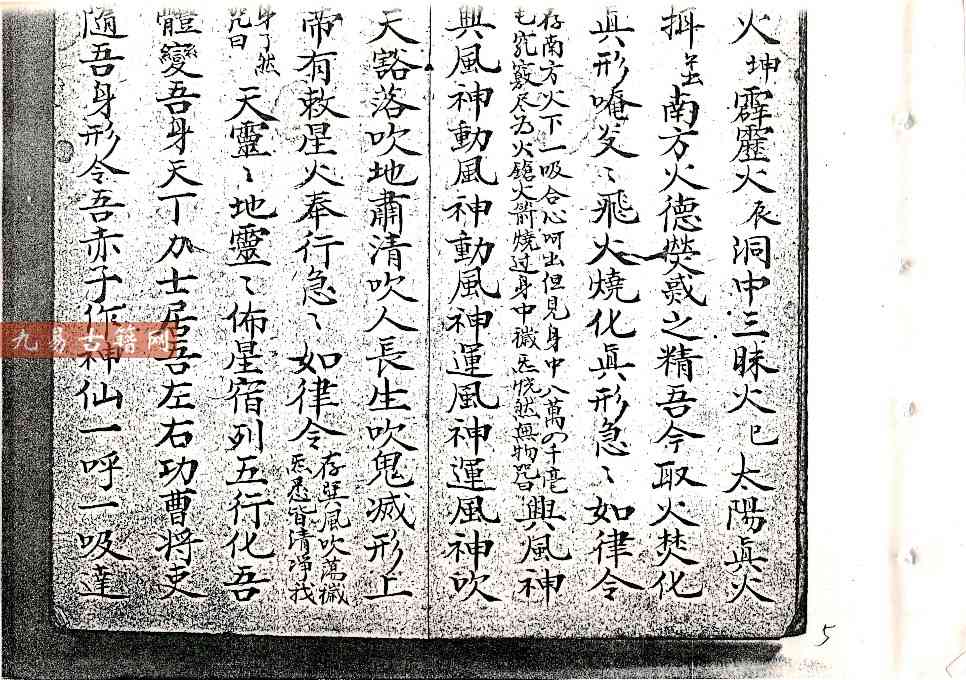 火坤霹靂火辰洞中三昧火巳太陽真火
南方火德熒惑之精吾今取火焚化
真形唵㕛〻飛火燒化真形急〻如律令
存南方火下一吸合心呵出但見身中八萬四千毫
毛究竅尽為火鎗火箭燒過身中穢炁恍然無物咒曰
興風神
興風神動風神動風神運風神運風神吹
天豁落吹地肅清吹人長生吹鬼滅形上
帝有敕星火奉行急〻如律令
存巽風吹蕩穢
炁忍皆清淨找
身了然
咒曰
天靈〻地靈〻佈星宿列五行化吾
體變吾身天丁力士居吾左右功曹将吏
隨吾身形令吾赤子作神仙一呼一吸達
九易古籍网
5